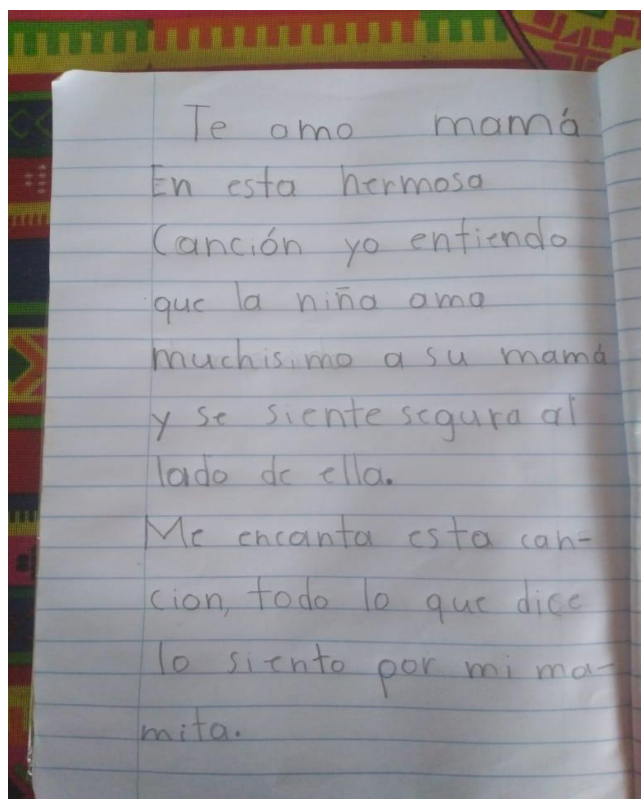 Te amo mamá
En esta hermosa
Canción yo entiendo
que la niña ama
muchisimo a su mamá
y se siente segura al
lado de ella.
Me encanta esta can-
cion, todo lo que dice
lo siento por mi ma-
mita.